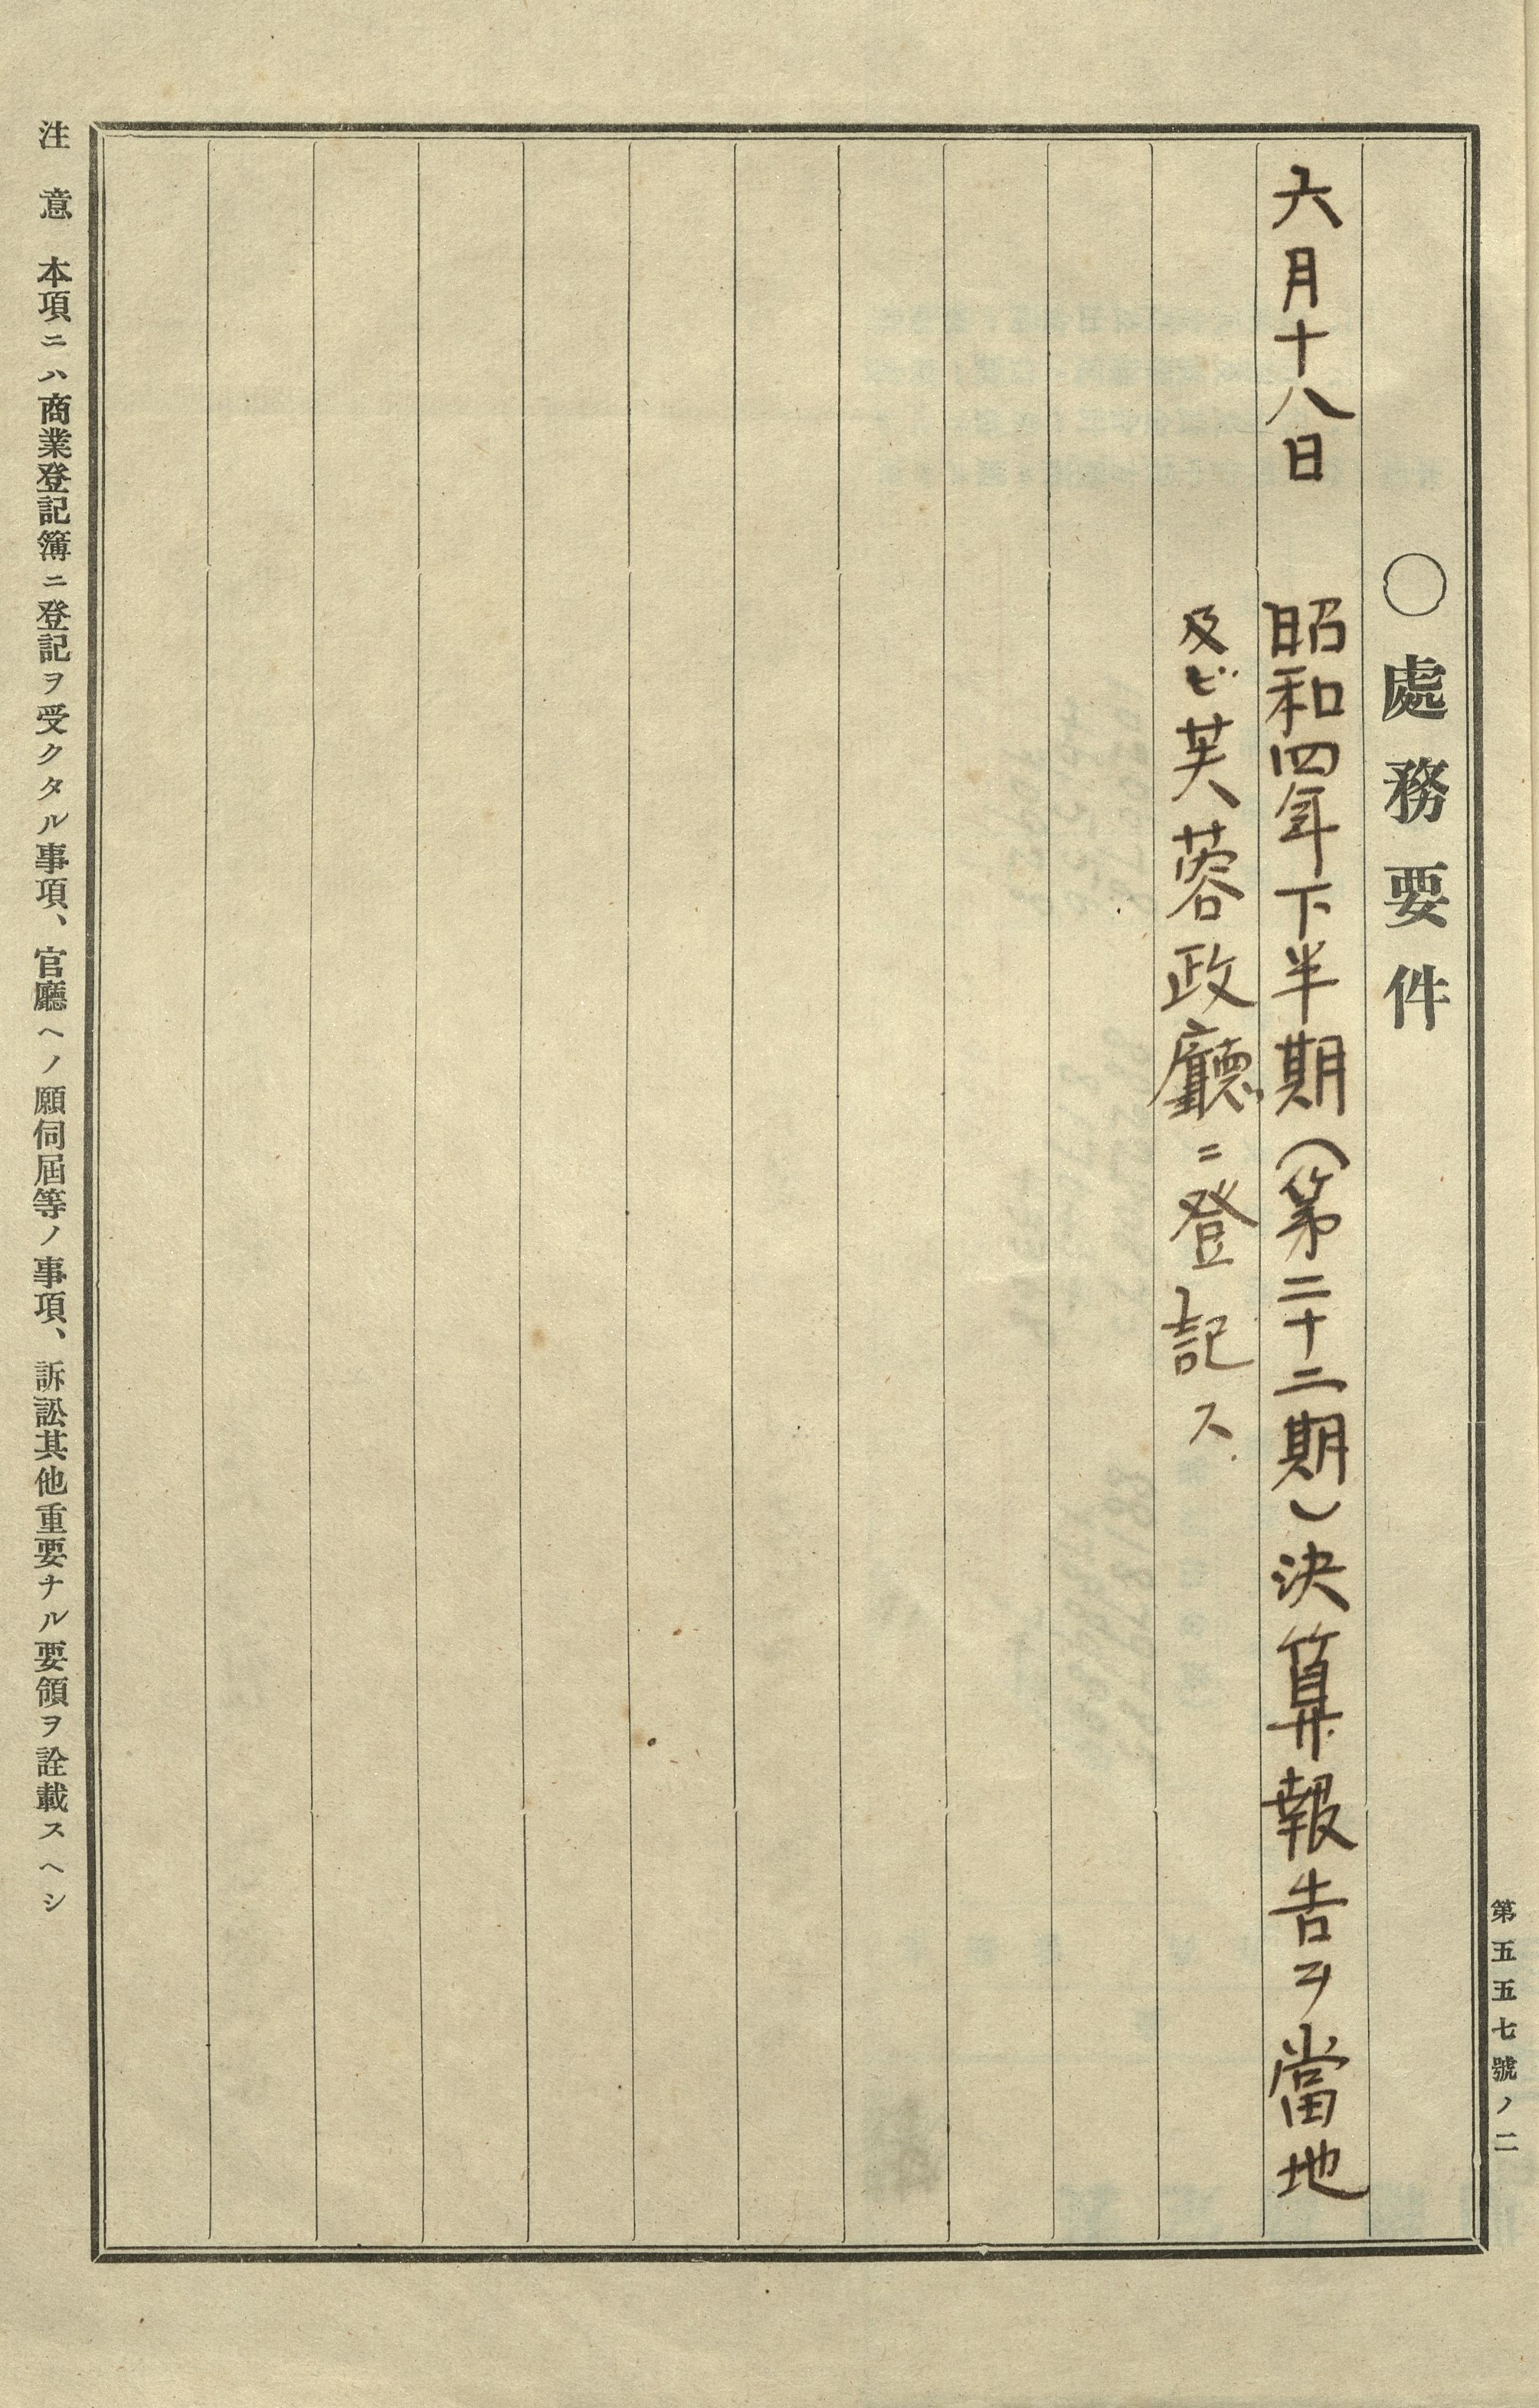 第五五七號ノ二
〇處務要件
六月十八日 昭和四年下半期(第二十二期)決算報告ヲ當地
及ビ芙蓉政廳ニ登記ス
注意 本項ニハ商業登記簿ニ登記ヲ受クタル事項、官廳ヘノ願伺屆等ノ事項、訴訟其他重要ナル要領ヲ詮載スヘシ